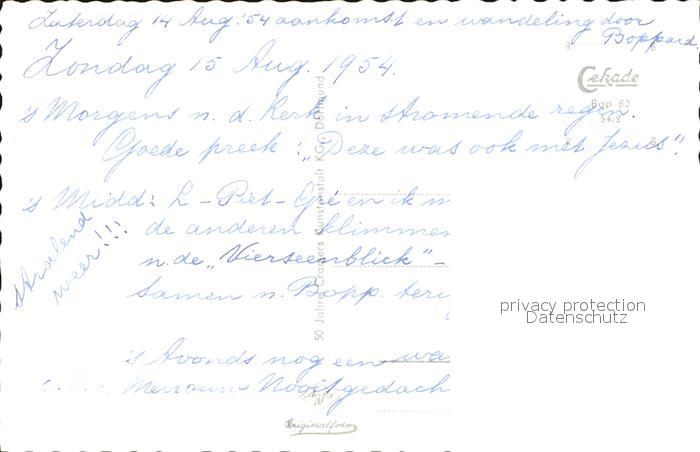 Zaterdag 14 Aug. '54 aankomst en wandeling door
Boppard.
Zondag 15 Aug. 1954.
Cekade
Bop 80
's Morgens n. d. Kerk in stromende regen.
Goede preek: „Deze was ook met Jezus".
's Midd: L - Piet - Gré en ik
de anderen klimmen
n. de „Vierseenblick" -
Samen n. Bopp.
stralend
weer!!!
's Avonds nog een
Mevrouw Nooitgedach
50 Jahre Cramers Kunstanstalt KG., Dortmund
Originalfoto
privacy protection
Datenschutz